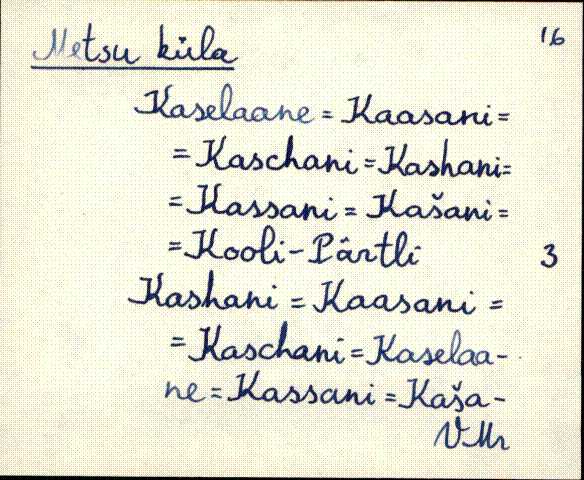 Metsu küla 16
Kaselaane = Kaasani =
= Kaschani = Kashani =
= Kassani = Kašani =
= Kooli-Pärtli 3
Kashani = Kaasani =
= Kaschani = Kaselaa-
ne = Kassani = Kaša-
VMr